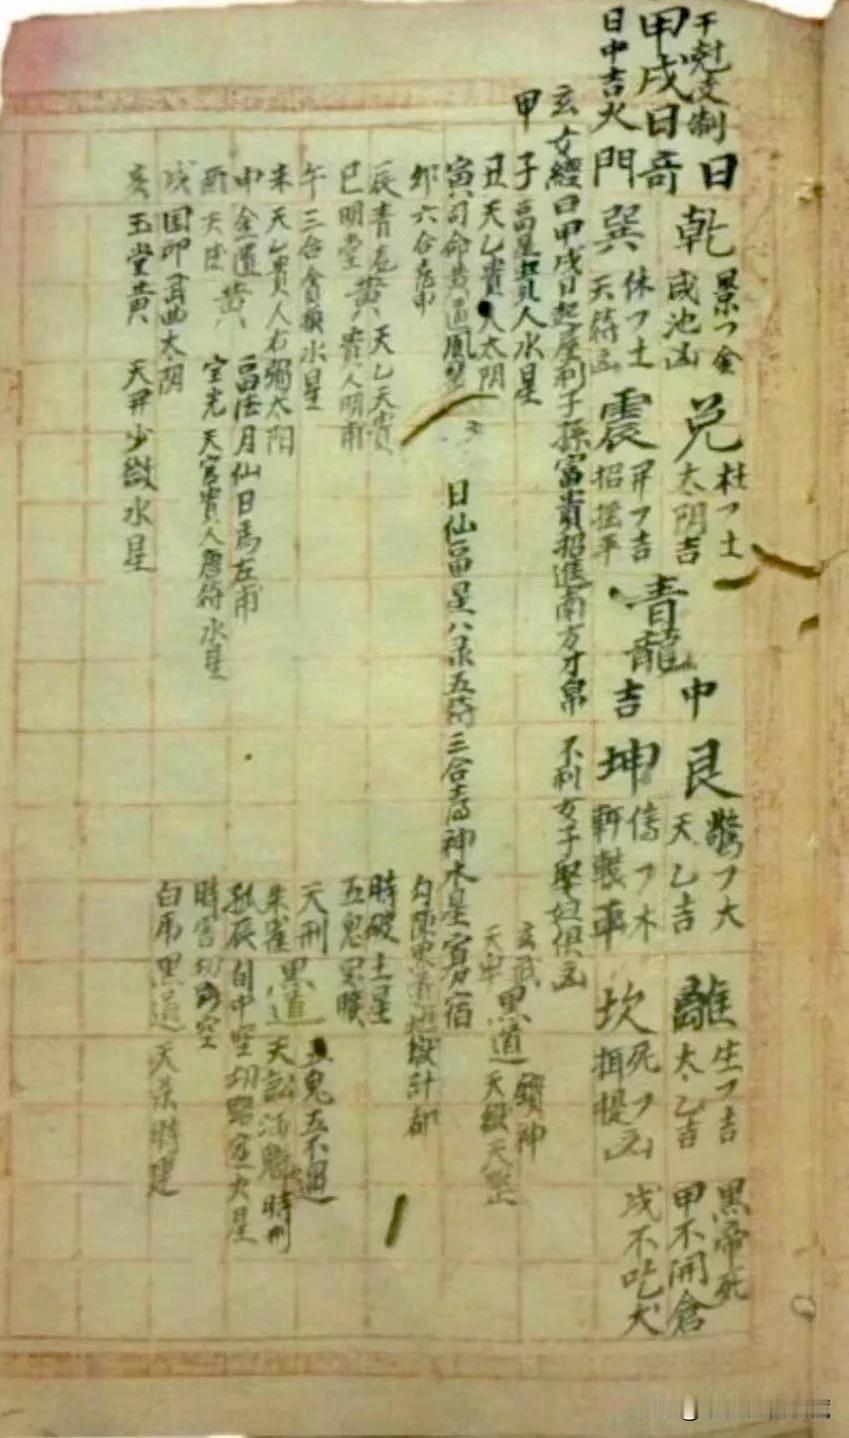 干尅支制
甲戌日奇門
日中吉火
日乾兌中艮離
景フ金
咸池凶
杜フ土
太阴吉
驚フ大
天乙吉
生フ吉
太乙吉
巽震青龍吉坤坎
休フ土
天符凶
招摇平
傷フ木
軒轅平
死フ凶
黑帝死
甲不開倉
戌不吃犬
玄女經曰甲戌日起屋利子孫富貴招進南方才帛 不利女子
甲子畐星貴人水星 玄武黑道
丑天乙貴人太阴 天牢 天賊
寅司命黄道鳳輦 日仙畐星八彔五符三合 神水星
卯六合 勾陳黑道 計都
辰青龙黄天乙天貴 時破土星
巳明堂黄貴人明甫 五鬼
午三合貪狼水星 天刑黑道 五鬼五不遇
未天乙貴人右弼太阳 朱雀黑道天訟 時刑
申金匱黄畐德月仙日馬左甫 孤辰旬中空切路空火星
酉天德黄宝光天官貴人唐符水星 時害切路空
戌国印 太阴 白虎黑道 時建
亥玉堂黄 天开少微水星